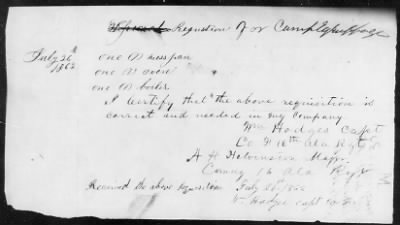 Special Requsition For Camp Equippage
July 26th
1862
one 1 mess pan
one 1 oven
one 1 boiler
I certify that the above requisition is
correct and needed in my company
Wm Hodges Capt
Co F 16th Ala Regt
A H Helvenston Major
Comdg 16 Ala Regt
Received the above requisition July 26th 1862
W. Hodges capt co F